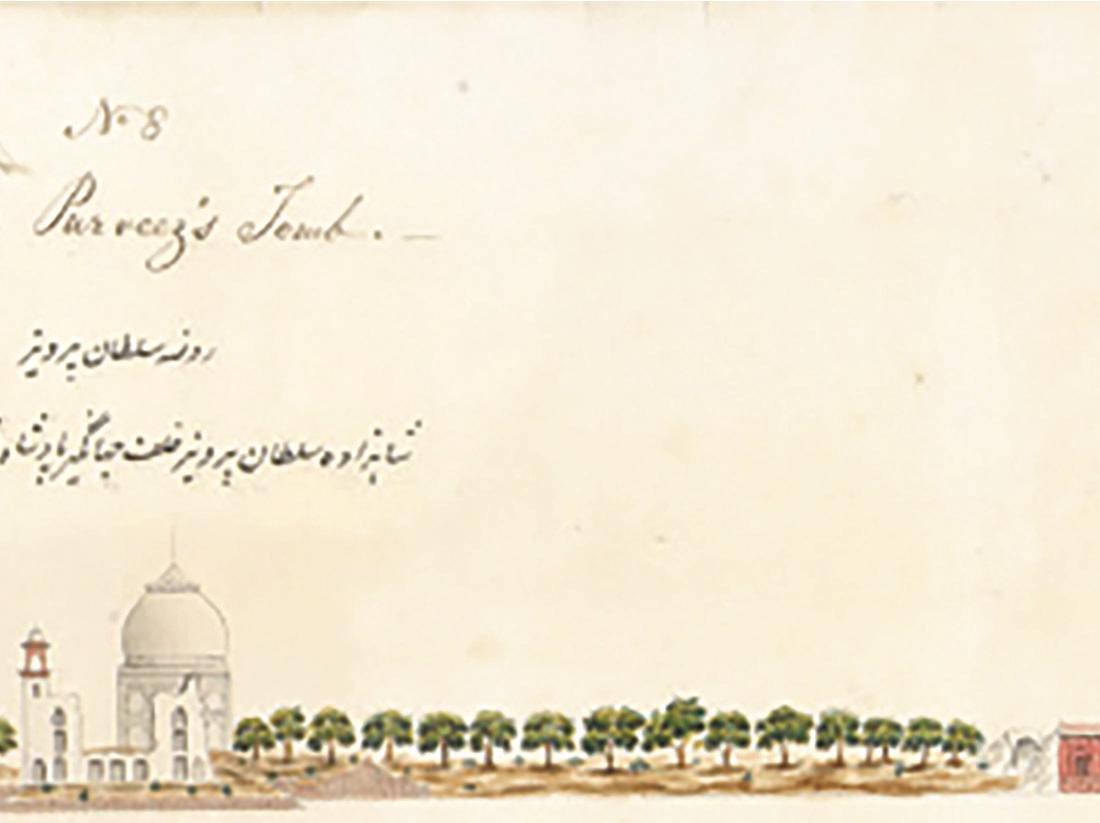 No 8
Purveez's Tomb. —
روضه سلطان پرویز
شاهزاده سلطان پرویز خلف جهانگیر بادشاه